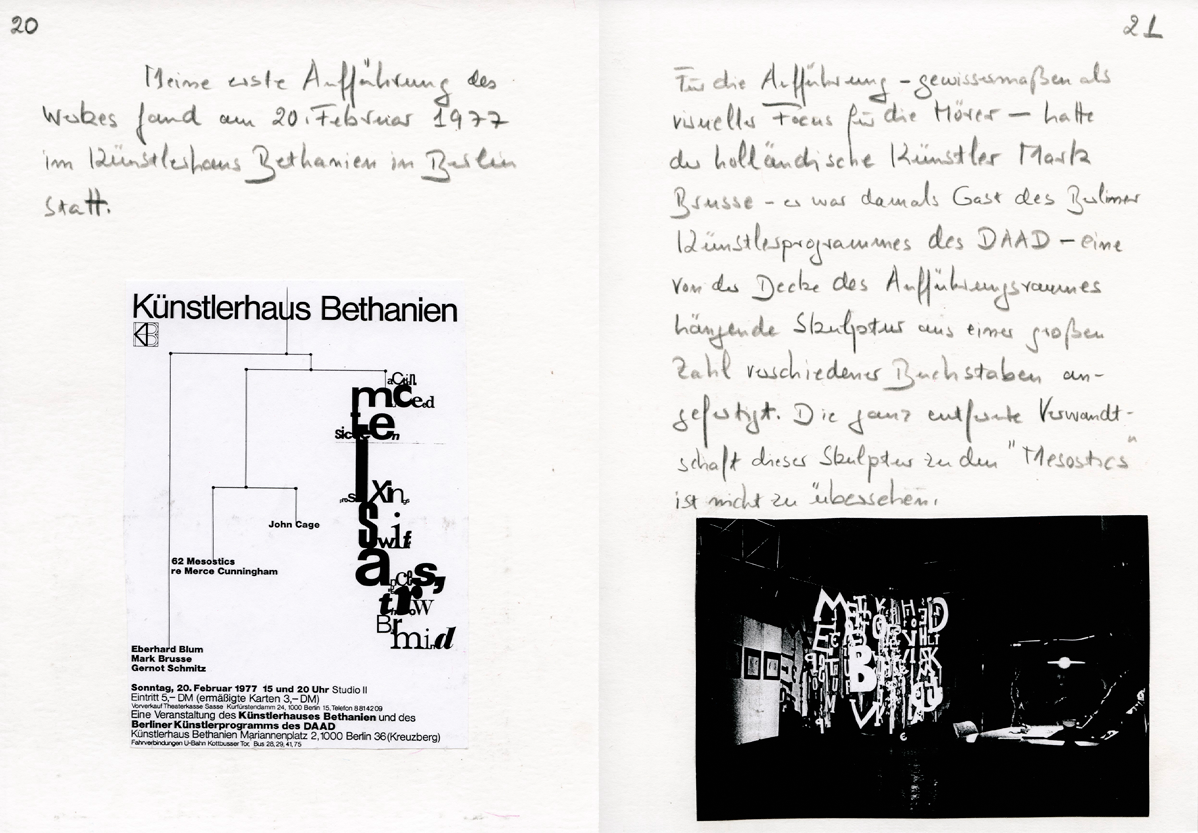 20
Meine erste Aufführung des
Werkes fand am 20. Februar 1977
im Künstlerhaus Bethanien in Berlin
statt.
Künstlerhaus Bethanien
KB
John Cage
62 Mesostics
re Merce Cunningham
Eberhard Blum
Mark Brusse
Gernot Schmitz
Sonntag, 20. Februar 1977 15 und 20 Uhr Studio II
Eintritt 5,– DM (ermäßigte Karten 3,– DM)
Vorverkauf Theaterkasse Sasse Kurfürstendamm 24, 1000 Berlin 15, Telefon 8 81 42 09
Eine Veranstaltung des Künstlerhauses Bethanien und des
Berliner Künstlerprogramms des DAAD
Künstlerhaus Bethanien Mariannenplatz 2, 1000 Berlin 36 (Kreuzberg)
Fahrverbindungen U-Bahn Kottbusser Tor, Bus 28, 29, 41, 75
21
Für die Aufführung – gewissermaßen als
visueller Focus für die Hörer – hatte
der holländische Künstler Mark
Brusse – er war damals Gast des Berliner
Künstlerprogrammes des DAAD – eine
von der Decke des Aufführungsraumes
hängende Skulptur aus einer großen
Zahl verschiedener Buchstaben an-
gefertigt. Die ganz entfernte Verwandt-
schaft dieser Skulptur zu den "Mesostics"
ist nicht zu übersehen.